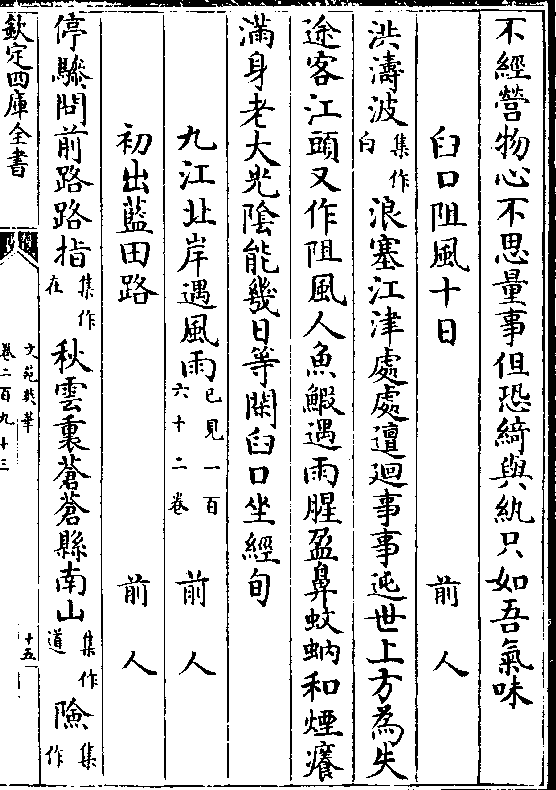 不經營物心不思量事但恐綺與紈只如吾氣味
臼口阻風十日 前人
洪濤波集作白浪塞江津處處邅迴事事迍世上方為失
途客江頭又作阻風人魚鰕遇雨腥盈鼻蚊蚋和煙癢
滿身老大光陰能幾日等閑臼口坐經旬
九江北岸遇風雨已見一百六十二卷 前人
初出藍田路 前人
停驂問前路路指集作在秋雲裏蒼蒼縣南山集作道險集作
欽定四庫全書
文苑英華
卷二百九十三
十五